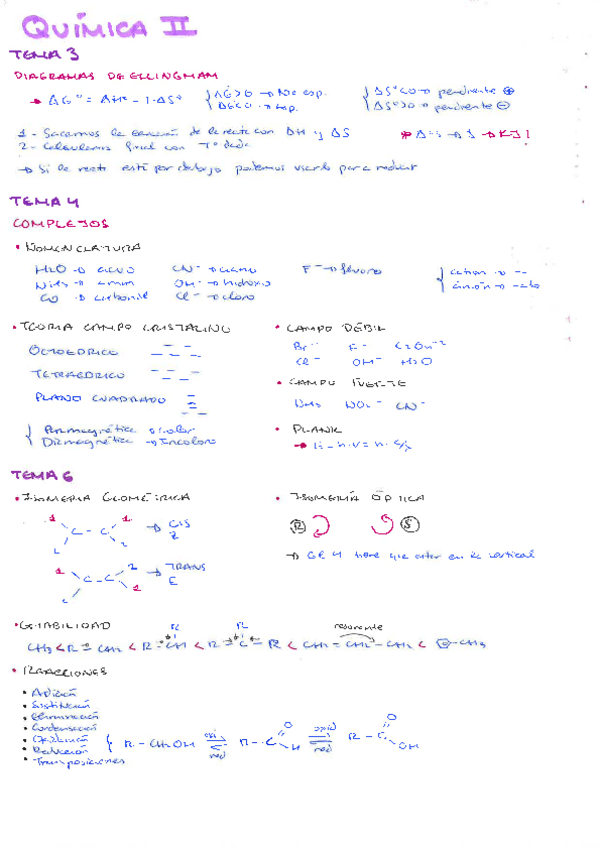 QUÍMICA II
TEMA 3
DIAGRAMAS DE ELLINGHAM
ΔG° = ΔH° - T·ΔS° { ΔG>0 → No esp. { ΔS°<0 → pendiente ⊕
ΔG<0 → esp. ΔS°>0 → pendiente ⊖
1 - Sacamos la ecuación de la recta con ΔH y ΔS
2 - Calculamos final con T° dada
→ Si la recta está por debajo podemos usarlo para reducir
TEMA 4
COMPLEJOS
• NOMENCLATURA
H2O → acuo CN⁻ → ciano F⁻ → fluoro
NH3 → amin OH⁻ → hidroxo
CO → carbonil Cl⁻ → cloro
• TEORIA CAMPO CRISTALINO • CAMPO DÉBIL
OCTOEDRICO Br⁻ F⁻ C2O4⁻²
Cl⁻ OH⁻ H2O
TETRAEDRICO
• CAMPO FUERTE
PLANO CUADRADO
NH3 NO2⁻ CN⁻
{ Paramagnética → color • PLANK
Diamagnética → Incoloro
TEMA 6
• ISOMERIA GEOMÉTRICA • ISOMERÍA ÓPTICA
1 1 → CIS
C - C Z
2 2
R S
→ GR 4 tiene que estar en la vertical
1 2 → TRANS
C - C E
2 1
• ESTABILIDAD
resonante
• REACCIONES
• Adición
• Sustitución
• Eliminación
• Condensación
• Oxidación
• Reducción
R - CH2OH oxi red R - C O H oxid red R - C O OH
• Transposiciones